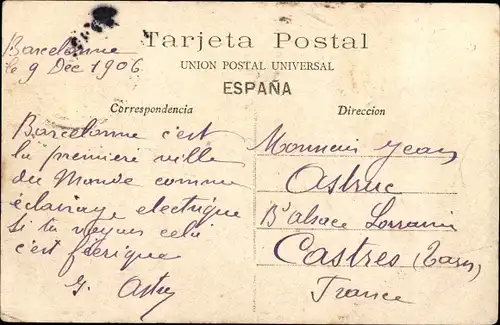 Barcelonne
le 9 Dec 1906
Tarjeta Postal
UNION POSTAL UNIVERSAL
ESPAÑA
Correspondencia
Direccion
Barcelonne c'est
la première ville
du Monde comme
éclairage electrique
Si tu voyais cela
c'est féerique
Monsieur Jean
Astruc
Bd Alsace Lorraine
Castres (Tarn)
France